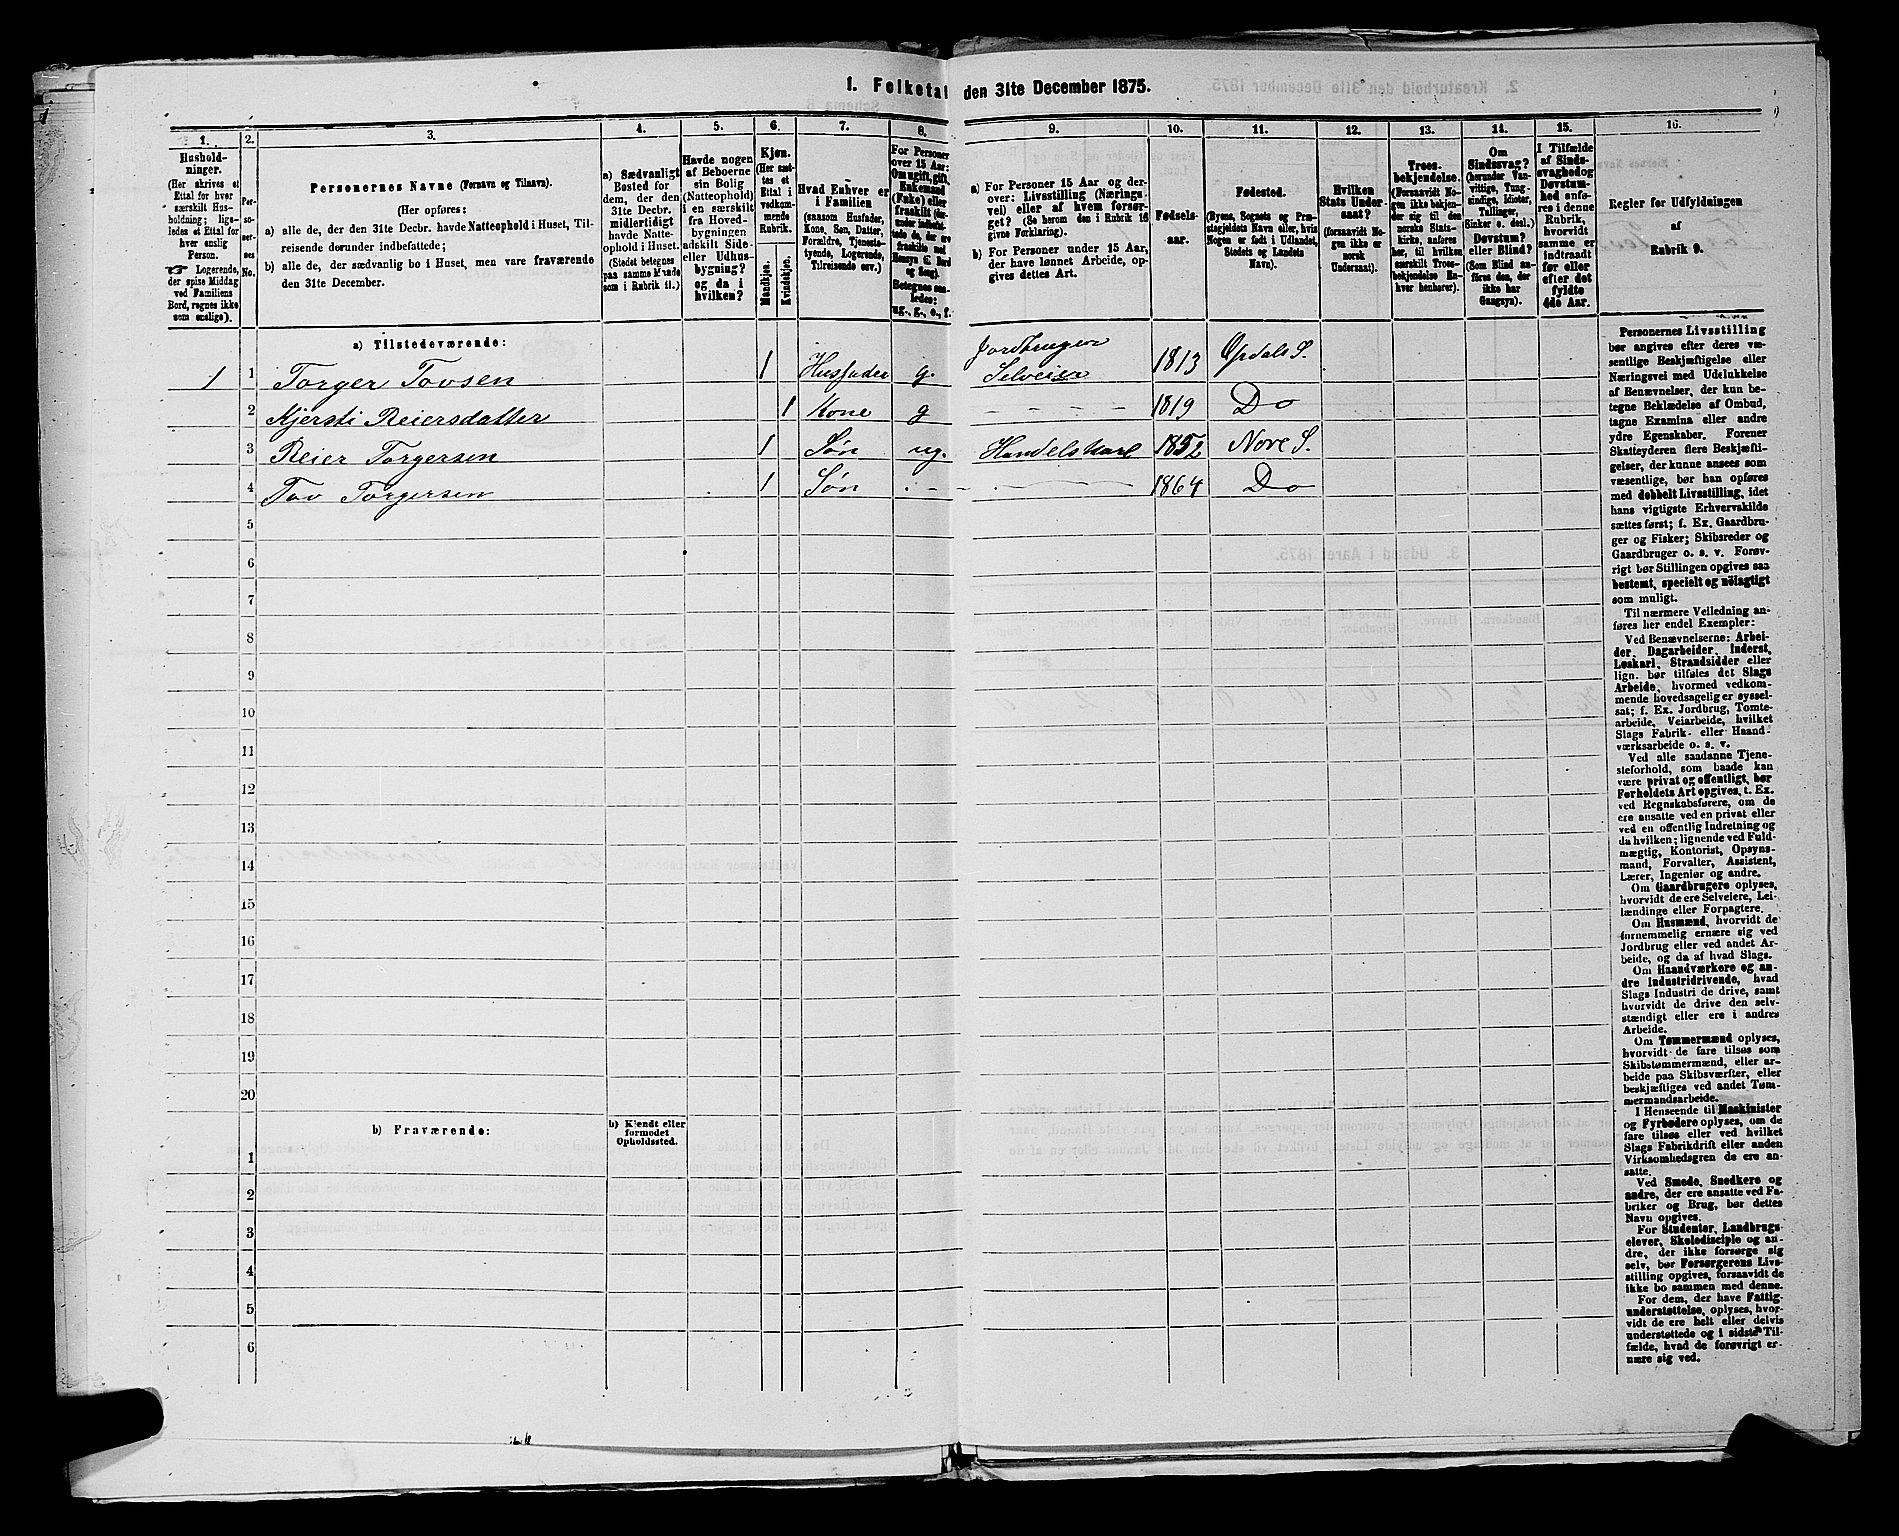 1. Folketal den 31te December 1875.
1. 2. 3. 4. 5. 6. 7. 8. 9. 10. 11. 12. 13. 14. 15. 16.
Husholdninger.
(Her skrives et
Ettal for hver
særskilt Husholdning;
ligeledes et Ettal for
hver enslig
Person.
☞ Logerende,
der spise Middag
ved Familiens
Bord, regnes ikke
som enslige).
Personernes No.
Personernes Navne (Fornavn og Tilnavn).
(Her opføres:
a) alle de, der den 31te Decbr. havde Natteophold i Huset, Tilreisende derunder indbefattede;
b) alle de, der sædvanlig bo i Huset, men vare fraværende
den 31te December.
a) Sædvanligt
Bosted for
dem, der den
31te Decbr.
midlertidigt
havde Natteophold i Huset.
(Stedet betegnes
paa samme Maade
som i Rubrik 11.)
Havde nogen
af Beboerne
sin Bolig
(Natteophold)
i en særskilt
fra Hovedbygningen
adskilt Side-
eller Udhusbygning?
og da i
hvilken?
Kjøn.
(Her sættes et
Ettal i
vedkommende
Rubrik.
Mandkjøn.
Kvindekjøn.
Hvad Enhver er
i Familien
(saasom Husfader,
Kone, Søn, Datter,
Forældre, Tjenestetyende, Logerende,
Tilreisende osv.)
For Personer
over 15 Aar:
Om ugift, gift,
Enkemand
(Enke) eller
fraskilt
Betegnes saaledes:
ug., g., e., f.
a) For Personer 15 Aar og derover: Livsstilling (Næringsvei) eller af hvem forsørget? (Se herom den i Rubrik 16
givne Forklaring).
b) For Personer under 15 Aar,
der have lønnet Arbeide, opgives dettes Art.
Fødselsaar.
Fødested.
(Byens, Sognets og Præstegjeldets Navn eller, hvis
Nogen er født i Udlandet,
Stedets og Landets
Navn).
Hvilken
Stats Undersaat?
(forsaavidt Nogen ikke er
norsk
Undersaat).
Troesbekjendelse.
(Forsaavidt Nogen ikke bekjender sig til den
norske Statskirke, anføres
her, til hvilken
særskilt Troesbekjendelse Enhver henhører).
Om
Sindssvag?
(herunder Vanvittige, Tungsindige, Idioter,
Tullinger,
Sinker o. desl.)
Døvstum?
eller Blind?
(Som Blind anføres den, der
ikke har
Gangsyn).
I Tilfælde
af Sindssvaghed og
Døvstumhed anføres i denne
Rubrik,
hvorvidt
samme er
indtraadt
før eller
efter det
fyldte
4de Aar.
Regler for Udfyldningen
af
Rubrik 9.
a) Tilstedeværende:
1 1 Torger Tovsen 1 Husfader g. Jordbruger Selveier 1813 Opdals S.
2 Kjersti Reiersdatter 1 Kone g – – – – 1819 Do
3 Reier Torgersen 1 Søn ug. Handelskarl 1852 Nore S.
4 Tov Torgersen 1 Søn – – – 1864 Do
5
6
7
8
9
10
11
12
13
14
15
16
17
18
19
20
b) Fraværende: b) Kjendt eller
formodet
Opholdssted.
1
2
3
4
5
6
Personernes Livsstilling
bør angives efter deres væsentlige Beskjæftigelse eller
Næringsvei med Udelukkelse
af Benævnelser, der kun betegne Beklædelse af Ombud,
tagne Examina eller andre
ydre Egenskaber. Forener
Skatteyderen flere Beskjæftigelser, der kunne ansees som
væsentlige, bør han opføres
med dobbelt Livsstilling, idet
hans vigtigste Erhvervskilde
sættes først; f. Ex. Gaardbruger og Fisker; Skibsreder og
Gaardbruger o. s. v. Forøvrigt bør Stillingen opgives saa
bestemt, specielt og nöiagtigt
som muligt.
Til nærmere Veiledning anføres her endel Exempler:
Ved Benævnelserne: Arbeider, Dagarbeider, Inderst,
Løskarl, Strandsidder eller
lign. bør tilføies det Slags
Arbeide, hvormed vedkommende hovedsagelig er sysselsat; f. Ex. Jordbrug, Tomtearbeide, Veiarbeide, hvilket
Slags Fabrik- eller Haandværksarbeide o. s. v.
Ved alle saadanne Tjenesteforhold, som baade kan
være privat og offentligt, bør
Forholdets Art opgives, t. Ex.
ved Regnskabsførere, om de
ere ansatte ved en privat eller
ved en offentlig Indretning og
da hvilken; lignende ved Fuldmægtig, Kontorist, Opsynsmand, Forvalter, Assistent,
Lærer, Ingeniør og andre.
Om Gaardbrugere oplyses,
hvorvidt de ere Selveiere, Leilændinge eller Forpagtere.
Om Husmænd, hvorvidt de
fornemmelig ernære sig ved
Jordbrug eller ved andet Arbeide, og da af hvad Slags.
Om Haandværkere og andre Industridrivende, hvad
Slags Industri de drive, samt
hvorvidt de drive den selvstændigt eller ere i andres
Arbeide.
Om Tømmermænd oplyses,
hvorvidt de fare tilsøs som
Skibstømmermænd, eller arbeide paa Skibsværfter, eller
beskjæftiges ved andet Tømmermandsarbeide.
I Henseende til Maskinister
og Fyrbødere oplyses, om de
fare tilsøs eller ved hvilket
Slags Fabrikdrift eller anden
Virksomhedsgren de ere ansatte.
Ved Smede, Snedkere og
andre, der ere ansatte ved Fabriker og Brug, bør dettes
Navn opgives.
For Studenter, Landbrugselever, Skoledisciple og andre, der ikke forsørge sig
selv, bør Forsørgerens Livsstilling opgives, forsaavidt de
ikke bo sammen med denne.
For dem, der have Fattigunderstøttelse, oplyses, hvorvidt de ere helt eller delvis
understøttede og i sidste Tilfælde, hvad de forøvrigt ernære sig ved.